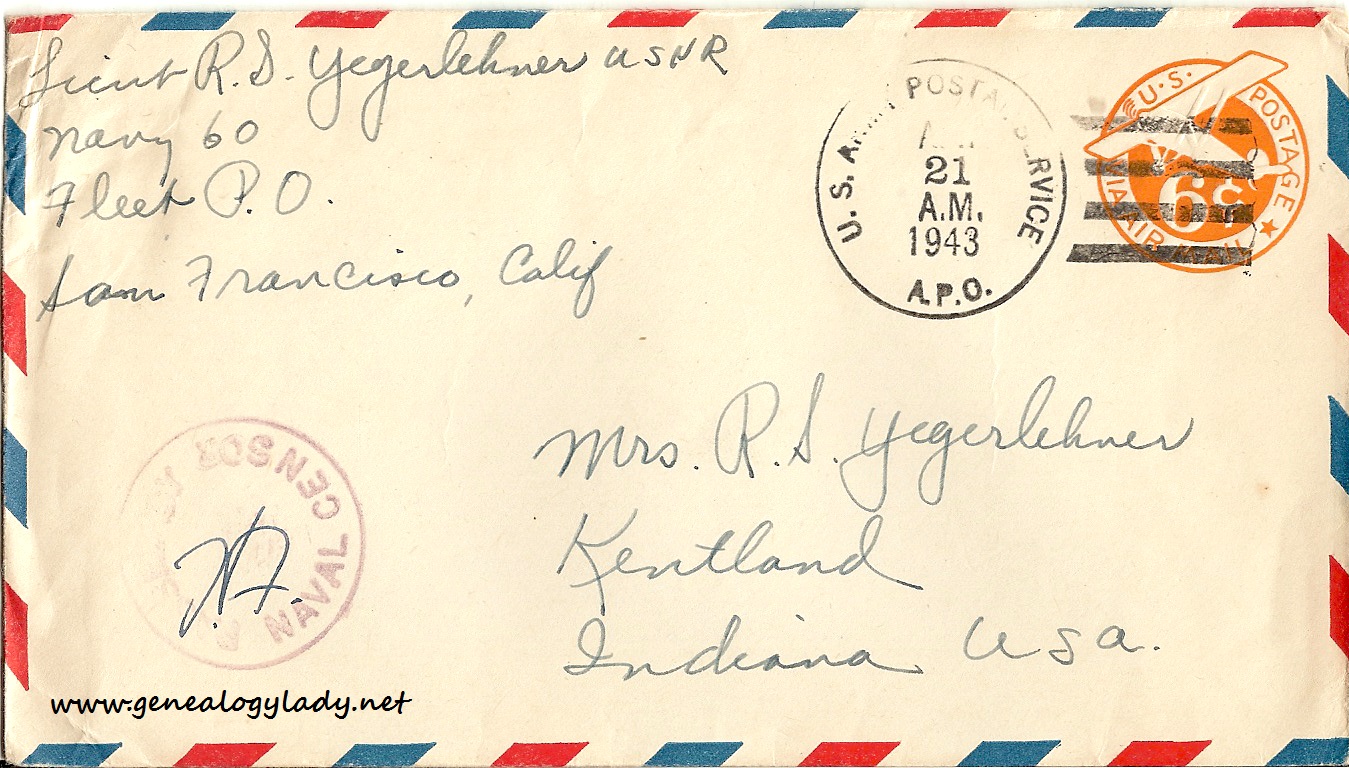 Lieut R.S. Yegerlehner USNR
Navy 60
Fleet P.O.
San Francisco, Calif
U.S. ARMY POSTAL SERVICE
21
A.M.
1943
A.P.O.
U.S. POSTAGE
6¢
VIA AIR MAIL
Mrs. R.S. Yegerlehner
Kentland
Indiana USA.
NAVAL CENSOR
www.genealogylady.net